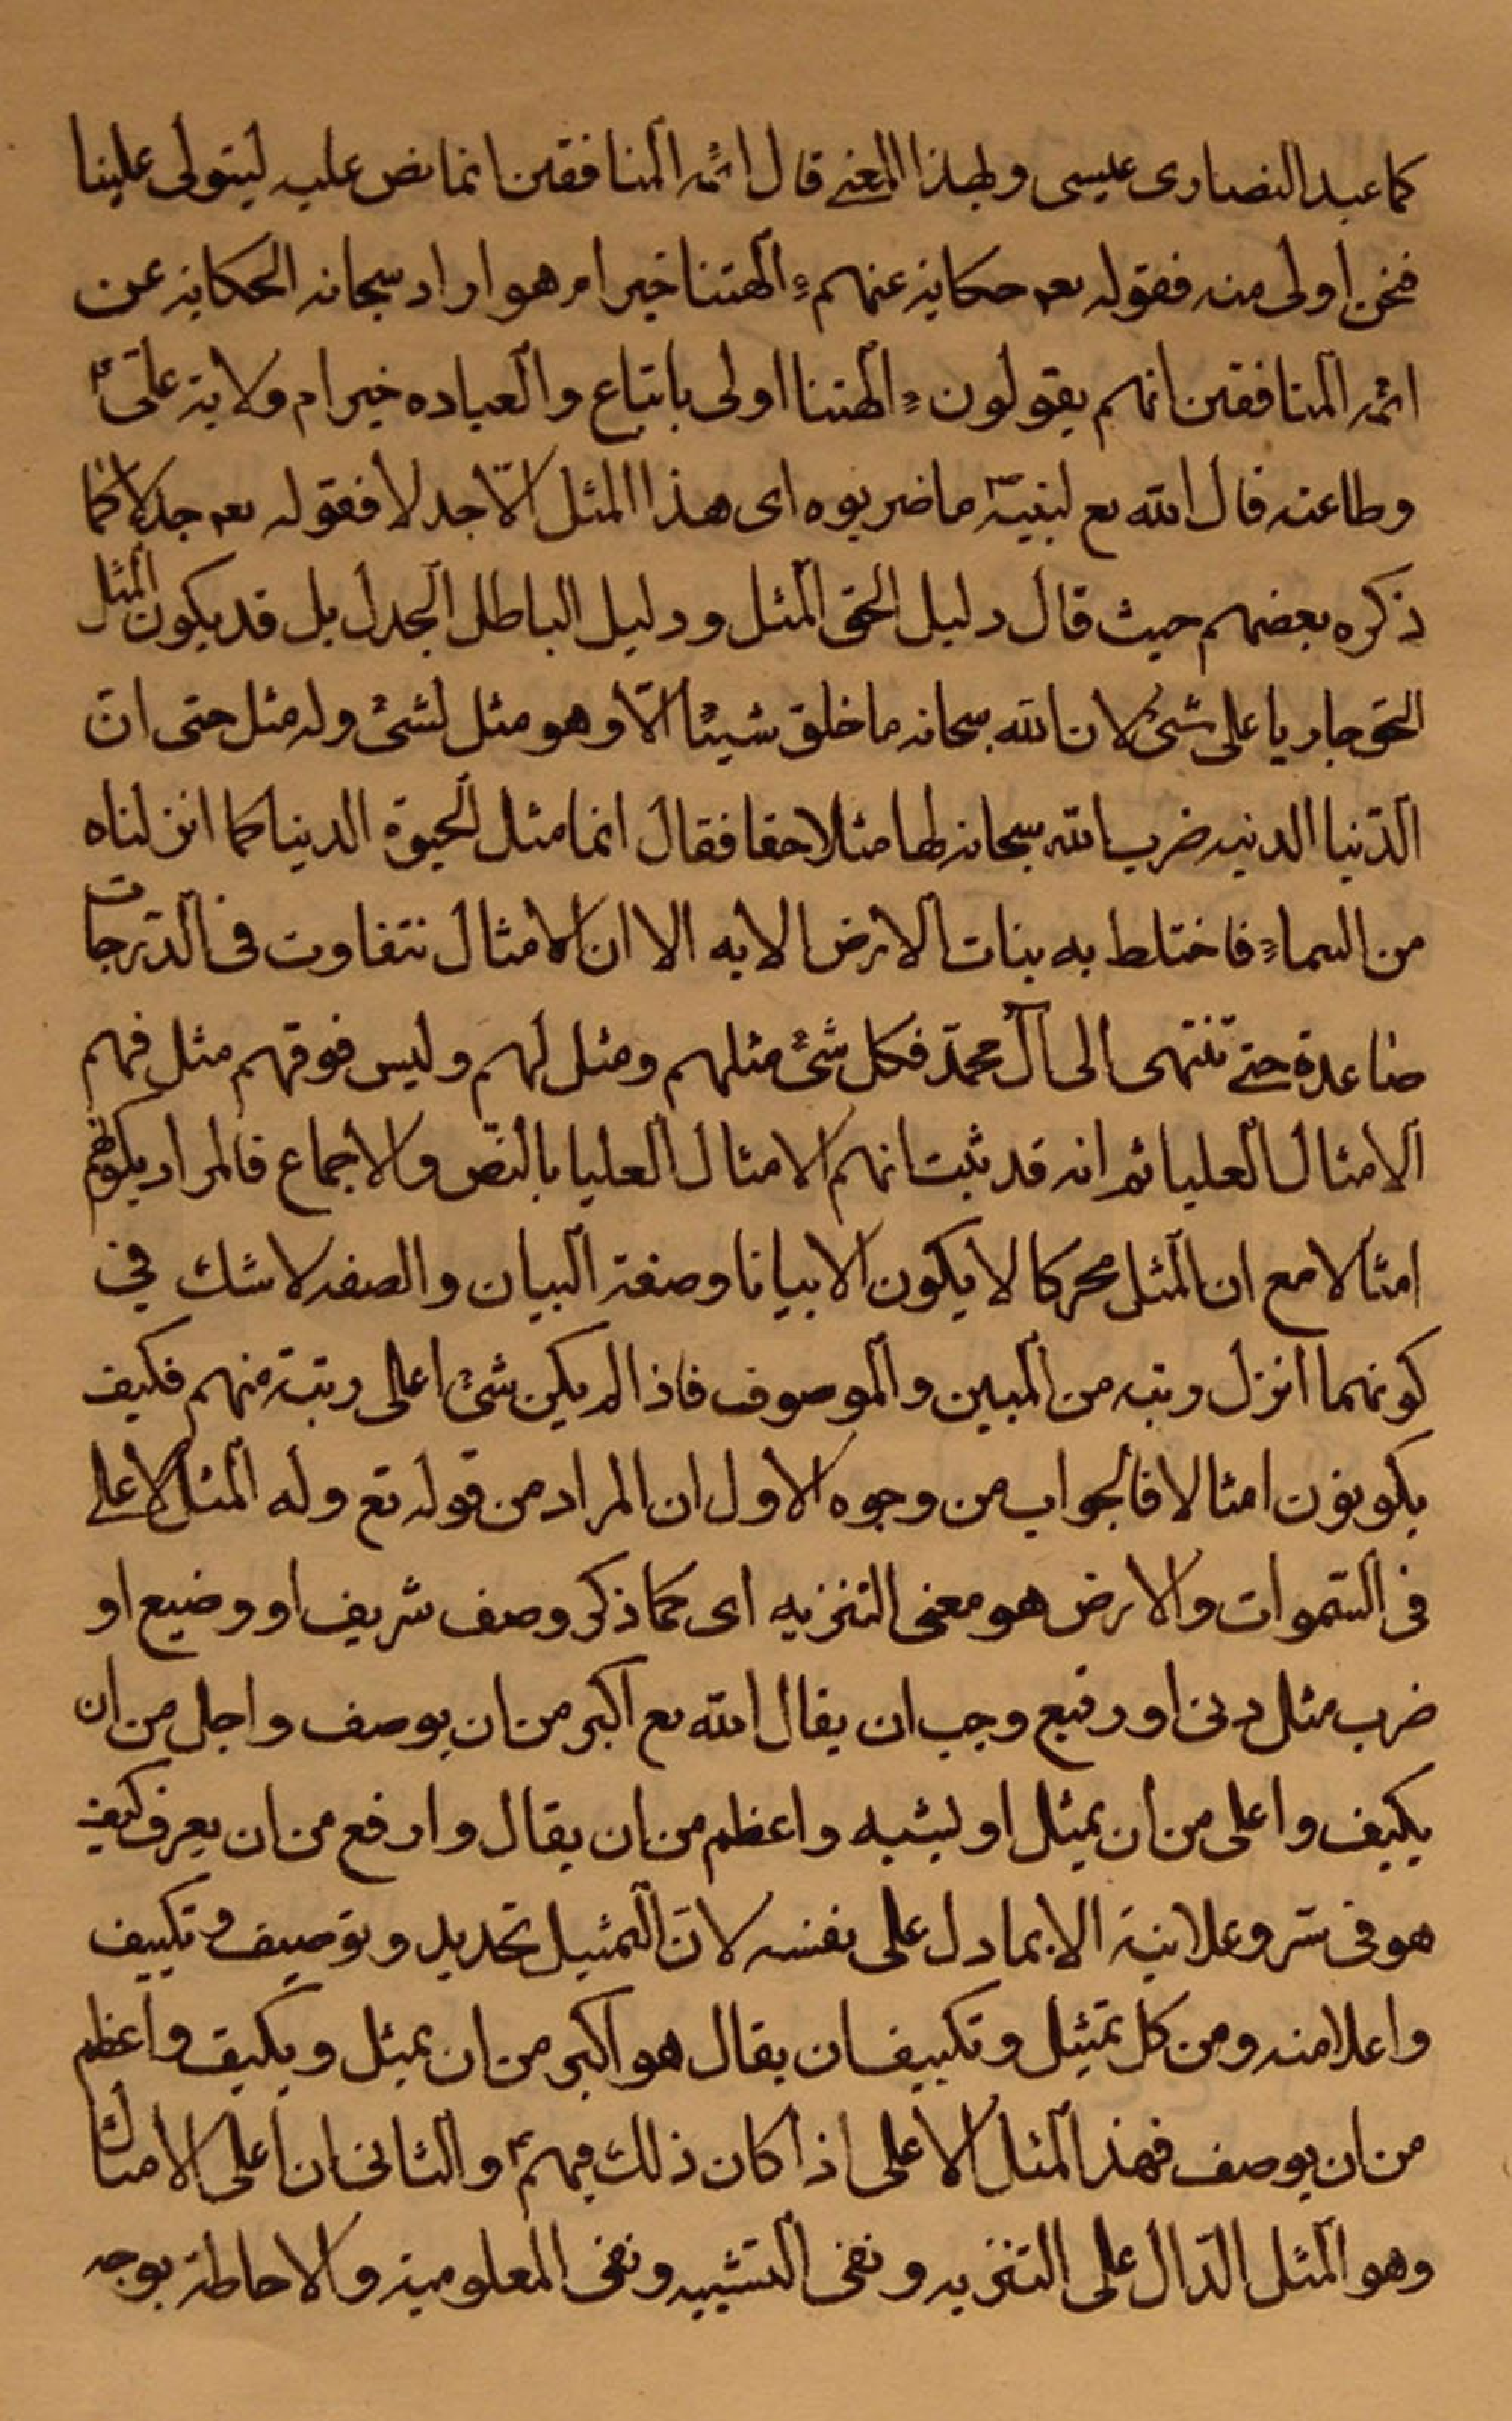 كما عبد النصارى عيسى ولهذا المعنى قال ائمه المنافقين انما نص عليه ليتولى علينا
فنحن اولى منه فقوله تعم حكاية عنهم ءالهتنا خير ام هو اراد سبحانه الحكاية عن
ائمه المنافقين انهم يقولون ءالهتنا اولى باتباع والعباده خير ام ولاية علىّ ع
وطاعته قال الله تع لنبيّه ص ما ضربوه اى هذا المثل الّا جدلا فقوله تعم جدلا كما
ذكره بعضهم حيث قال دليل الحق المثل ودليل الباطل الجدل بل قد يكون المثل
الحق جاريا على شئ لان الله سبحانه ما خلق شيئا الّا وهو مثل لشئ وله مثل حتى انّ
الدّنيا الدنيه ضرب الله سبحانه لها مثلا حقا فقال انما مثل الحيوة الدنيا كما انزلناه
من السماء فاختلط به نبات الارض الايه الا ان الامثال تتفاوت فى الدّرجات
صاعدة حتى تنتهى الى آل محمدّ فكل شئ مثلهم ومثل لهم وليس فوقهم مثل فهم
الامثال العليا ثم انه قد ثبت انهم الامثال العليا بالنصّ والاجماع فالمراد بكونهم
امثالا مع ان المثل محركا لا يكون الا بيانا وصفة البيان والصفه لا شك في
كونهما انزل رتبه من المبين والموصوف فاذا لم يكن شئ اعلى رتبة منهم فكيف
يكونون امثالا فالجواب من وجوه الاول ان المراد من قوله تع وله المثل الاعلى
فى السّموات والارض هو معنى التنزيه اى كما ذكر وصف شريف او وضيع او
ضرب مثل دنى او رفيع وجب ان يقال الله تع اكبر من ان يوصف واجل من ان
يكيف واعلى من ان يمثل او يشبه واعظم من ان يقال وارفع من ان يعرف كيف
هو فى سّر وعلانية الا بما دل على نفسه لانّ التمثيل تحديد وتوصيف وتكييف
واعلا منه ومن كل تمثيل وتكييف ان يقال هو اكبر من ان يمثل ويكيف واعظم
من ان يوصف فهذا المثل الاعلى اذا كان ذلك فيهم ع والثانى ان اعلى الامثال
وهو المثل الدّال على التنزيه ونفى التشبيه ونفى المعلومية والاحاطة بوجه